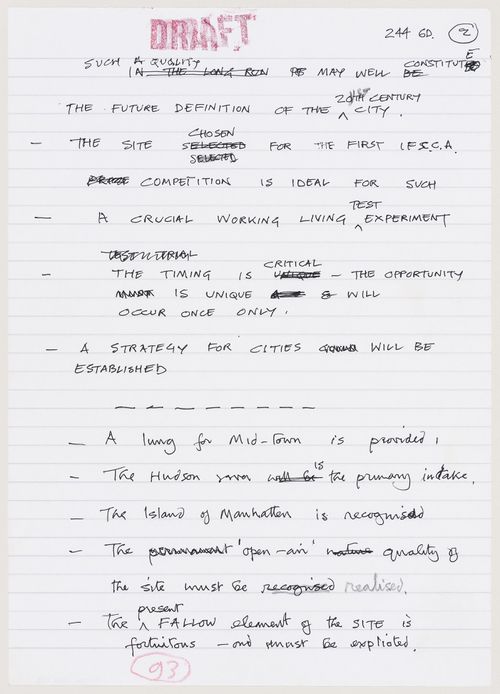 DRAFT
244 GD. 2
SUCH A QUALITY
IN THE LONG RUN MAY WELL BE CONSTITUTE
THE FUTURE DEFINITION OF THE 20TH CENTURY CITY.
- THE SITE SELECTED CHOSEN SELECTED FOR THE FIRST I.F.S.C.A.
COMPETITION IS IDEAL FOR SUCH
- A CRUCIAL WORKING LIVING TEST EXPERIMENT
- THE TIMING IS UNIQUE CRITICAL - THE OPPORTUNITY
IS UNIQUE & WILL
OCCUR ONCE ONLY.
- A STRATEGY FOR CITIES WILL BE
ESTABLISHED
- A lung for Mid-Town is provided,
- The Hudson river will be is the primary intake.
- The Island of Manhatten is recognised
- The permanent 'open-air' nature quality of
the site must be recognised realised.
- The present FALLOW element of the SITE is
fortuitous - and must be explioted.
93